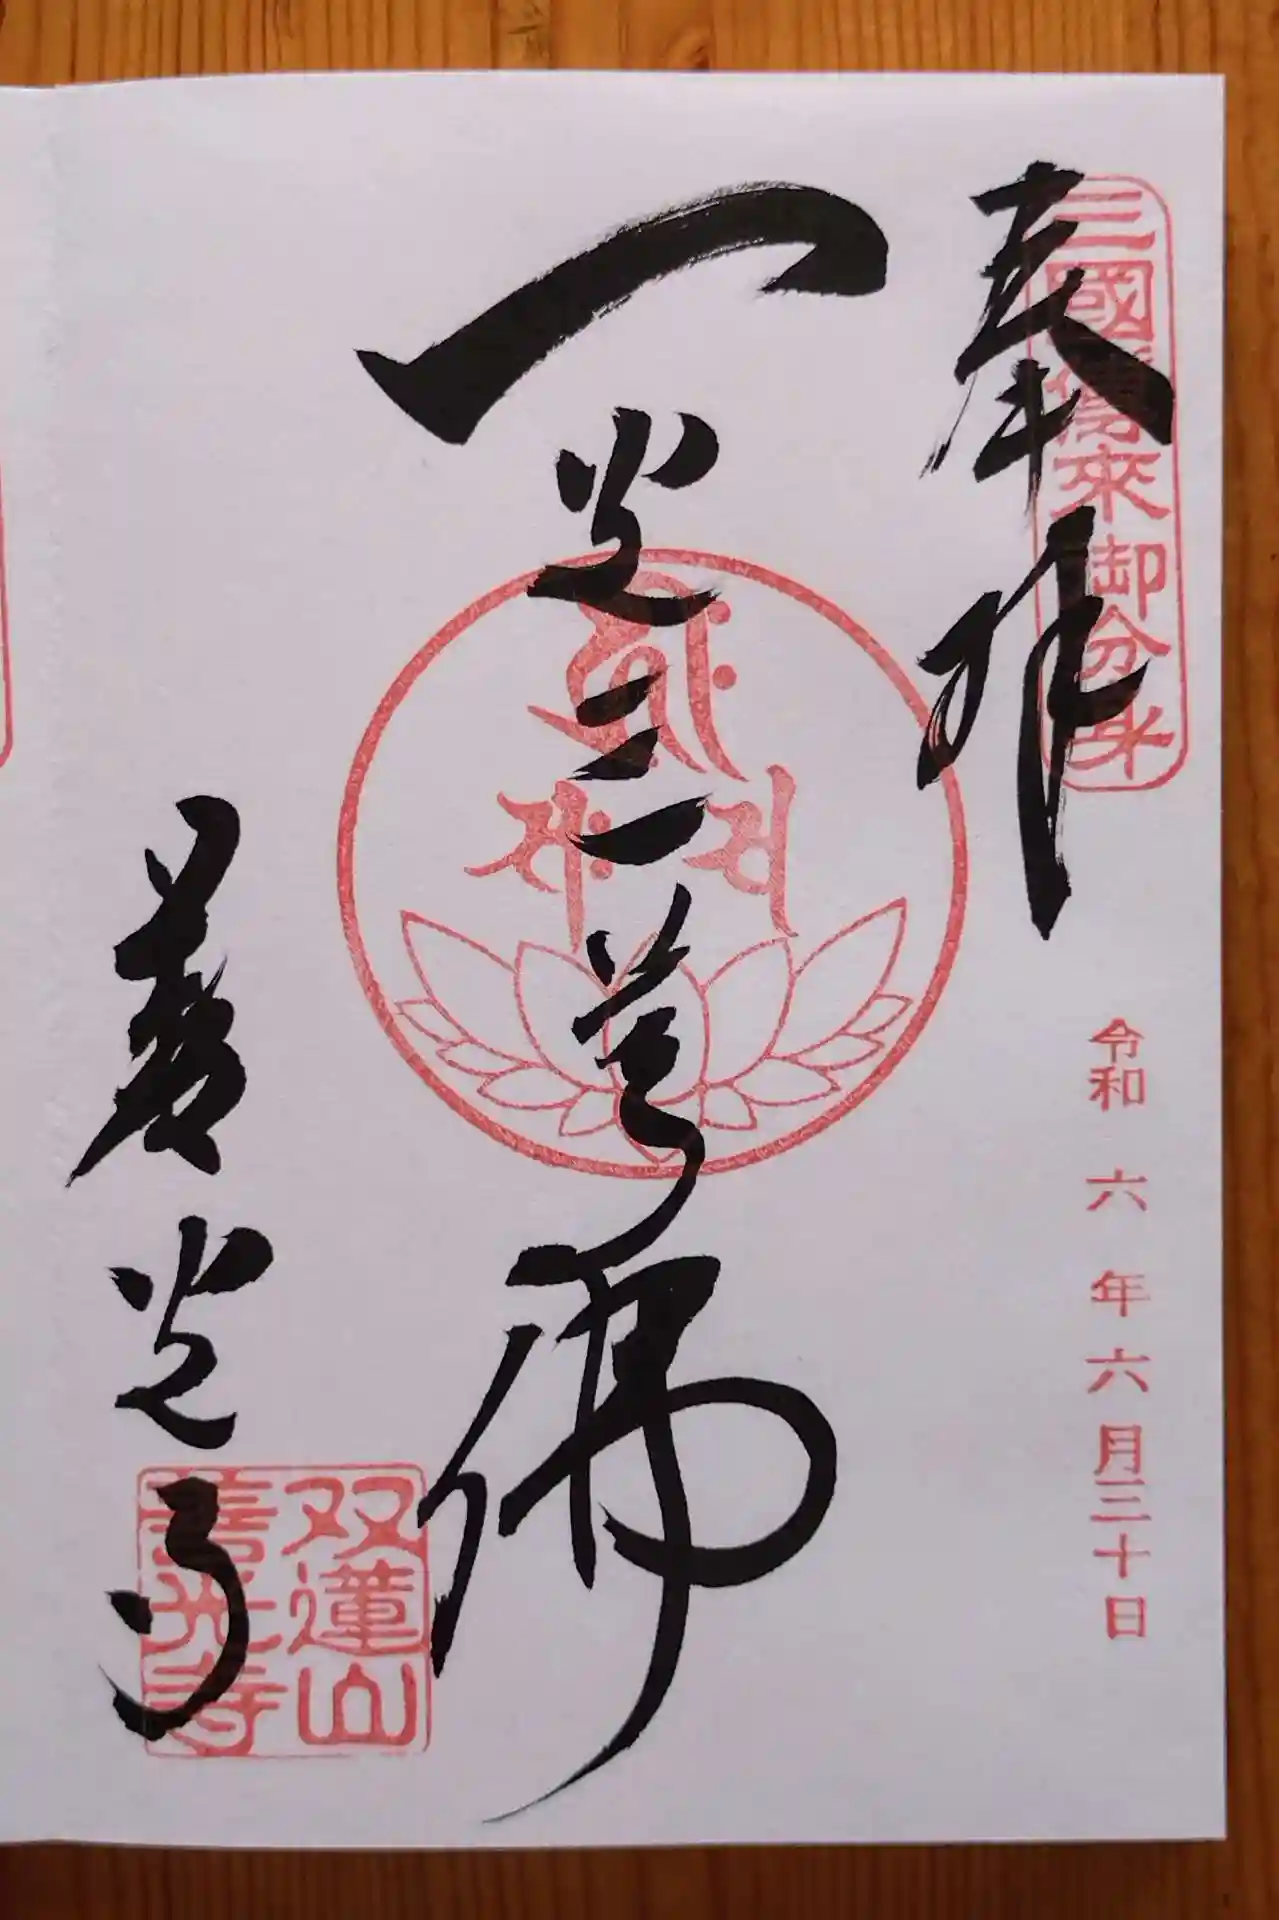 奉拝
三國傳來御分身
令和六年六月三十日
一光三尊佛
善光寺
双蓮山
善光寺